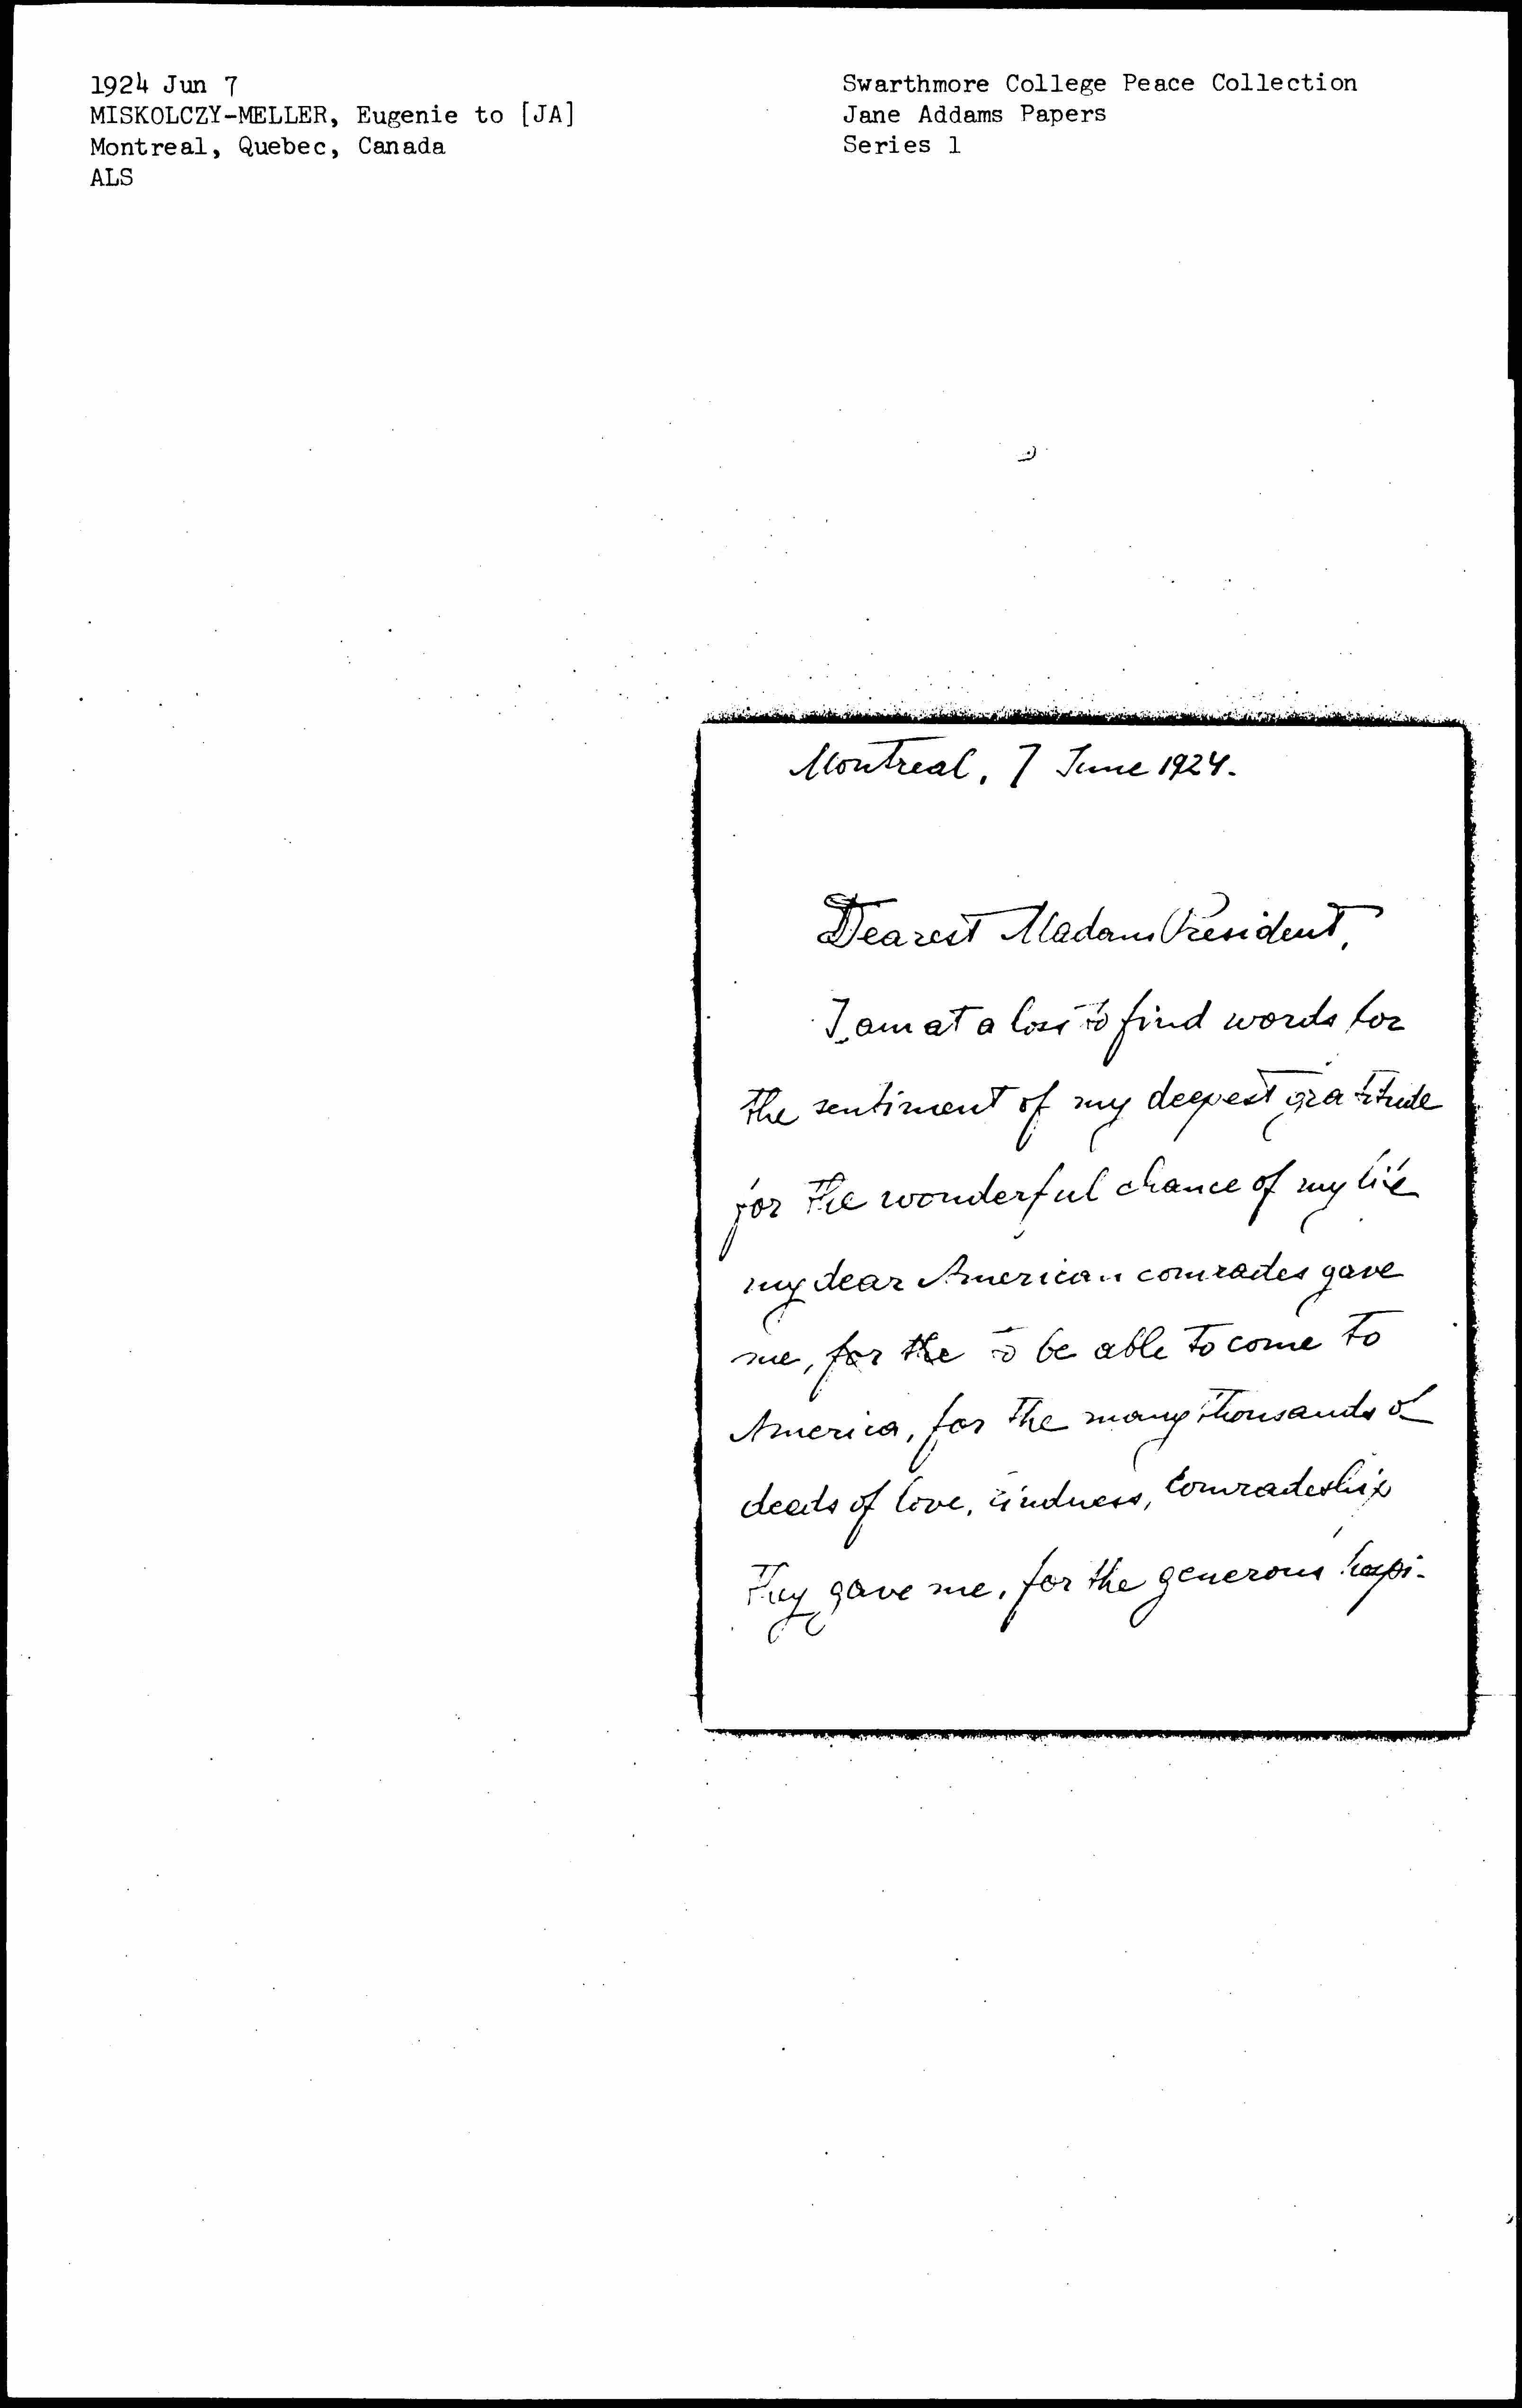 1924 Jun 7
MISKOLCZY-MELLER, Eugenie to [JA]
Montreal, Quebec, Canada
ALS
Swarthmore College Peace Collection
Jane Addams Papers
Series 1
Montreal, 7 June 1924.
Dearest Madam President,
I am at a loss to find words for
the sentiment of my deepest gratitude
for the wonderful chance of my life
my dear American comrades gave
me, for the to be able to come to
America, for the many thousands of
deeds of love, kindness, comradeship
they gave me, for the generous hospi-